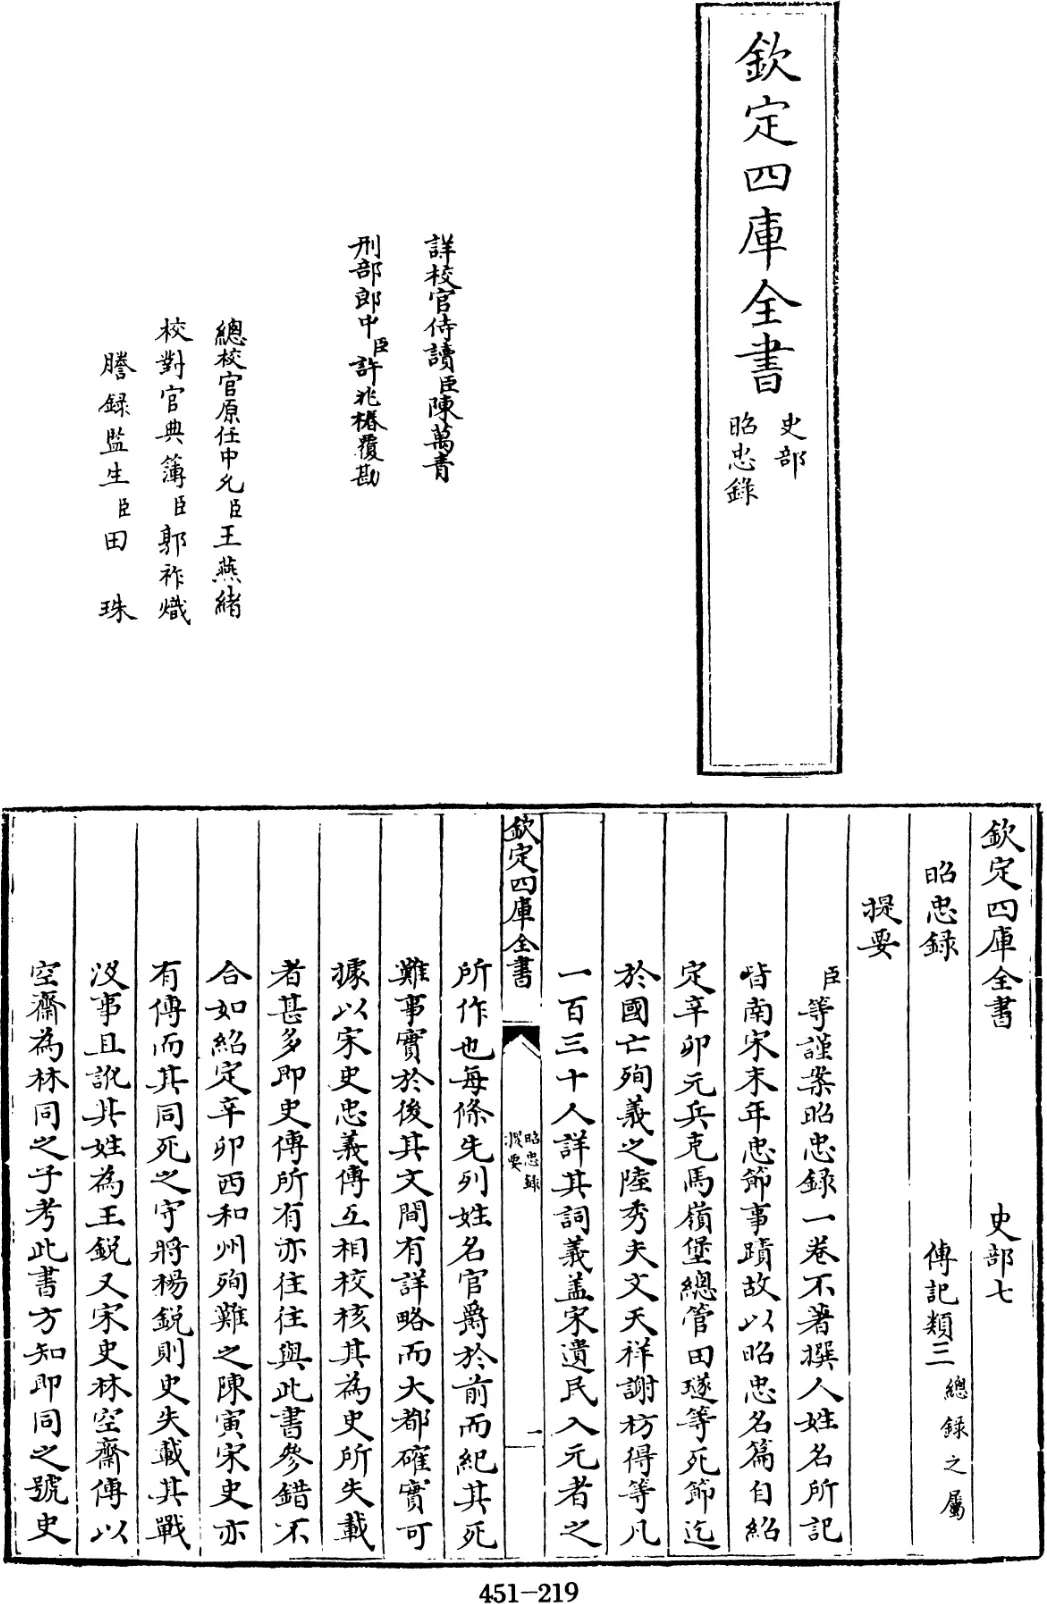 欽定四庫全書
史部
昭忠錄
詳校官侍讀臣陳萬青
刑部郎中臣許兆椿覆勘
總校官原任中允臣王燕緒
校對官典簿臣郭祚熾
謄錄監生臣田珠
欽定四庫全書 史部七
昭忠録 傳記類三總録之屬
提要
臣等謹案昭忠録一卷不著撰人姓名所記
皆南宋末年忠節事蹟故以昭忠名篇自紹
定辛卯元兵克馬嶺堡總管田璲等死節迄
於國亡殉義之陸秀夫文天祥謝枋得等凡
一百三十人詳其詞義盖宋遺民入元者之
欽定四庫全書
昭忠録
提要
一
所作也每條先列姓名官爵於前而紀其死
難事實於後其文間有詳略而大都確實可
據以宋史忠義傳互相校核其為史所失載
者甚多即史傳所有亦往往與此書參錯不
合如紹定辛卯西和州殉難之陳寅宋史亦
有傳而其同死之守將楊鋭則史失載其戰
沒事且訛其姓為王鋭又宋史林空齋傳以
空齋為林同之子考此書方知即同之號史
451-219